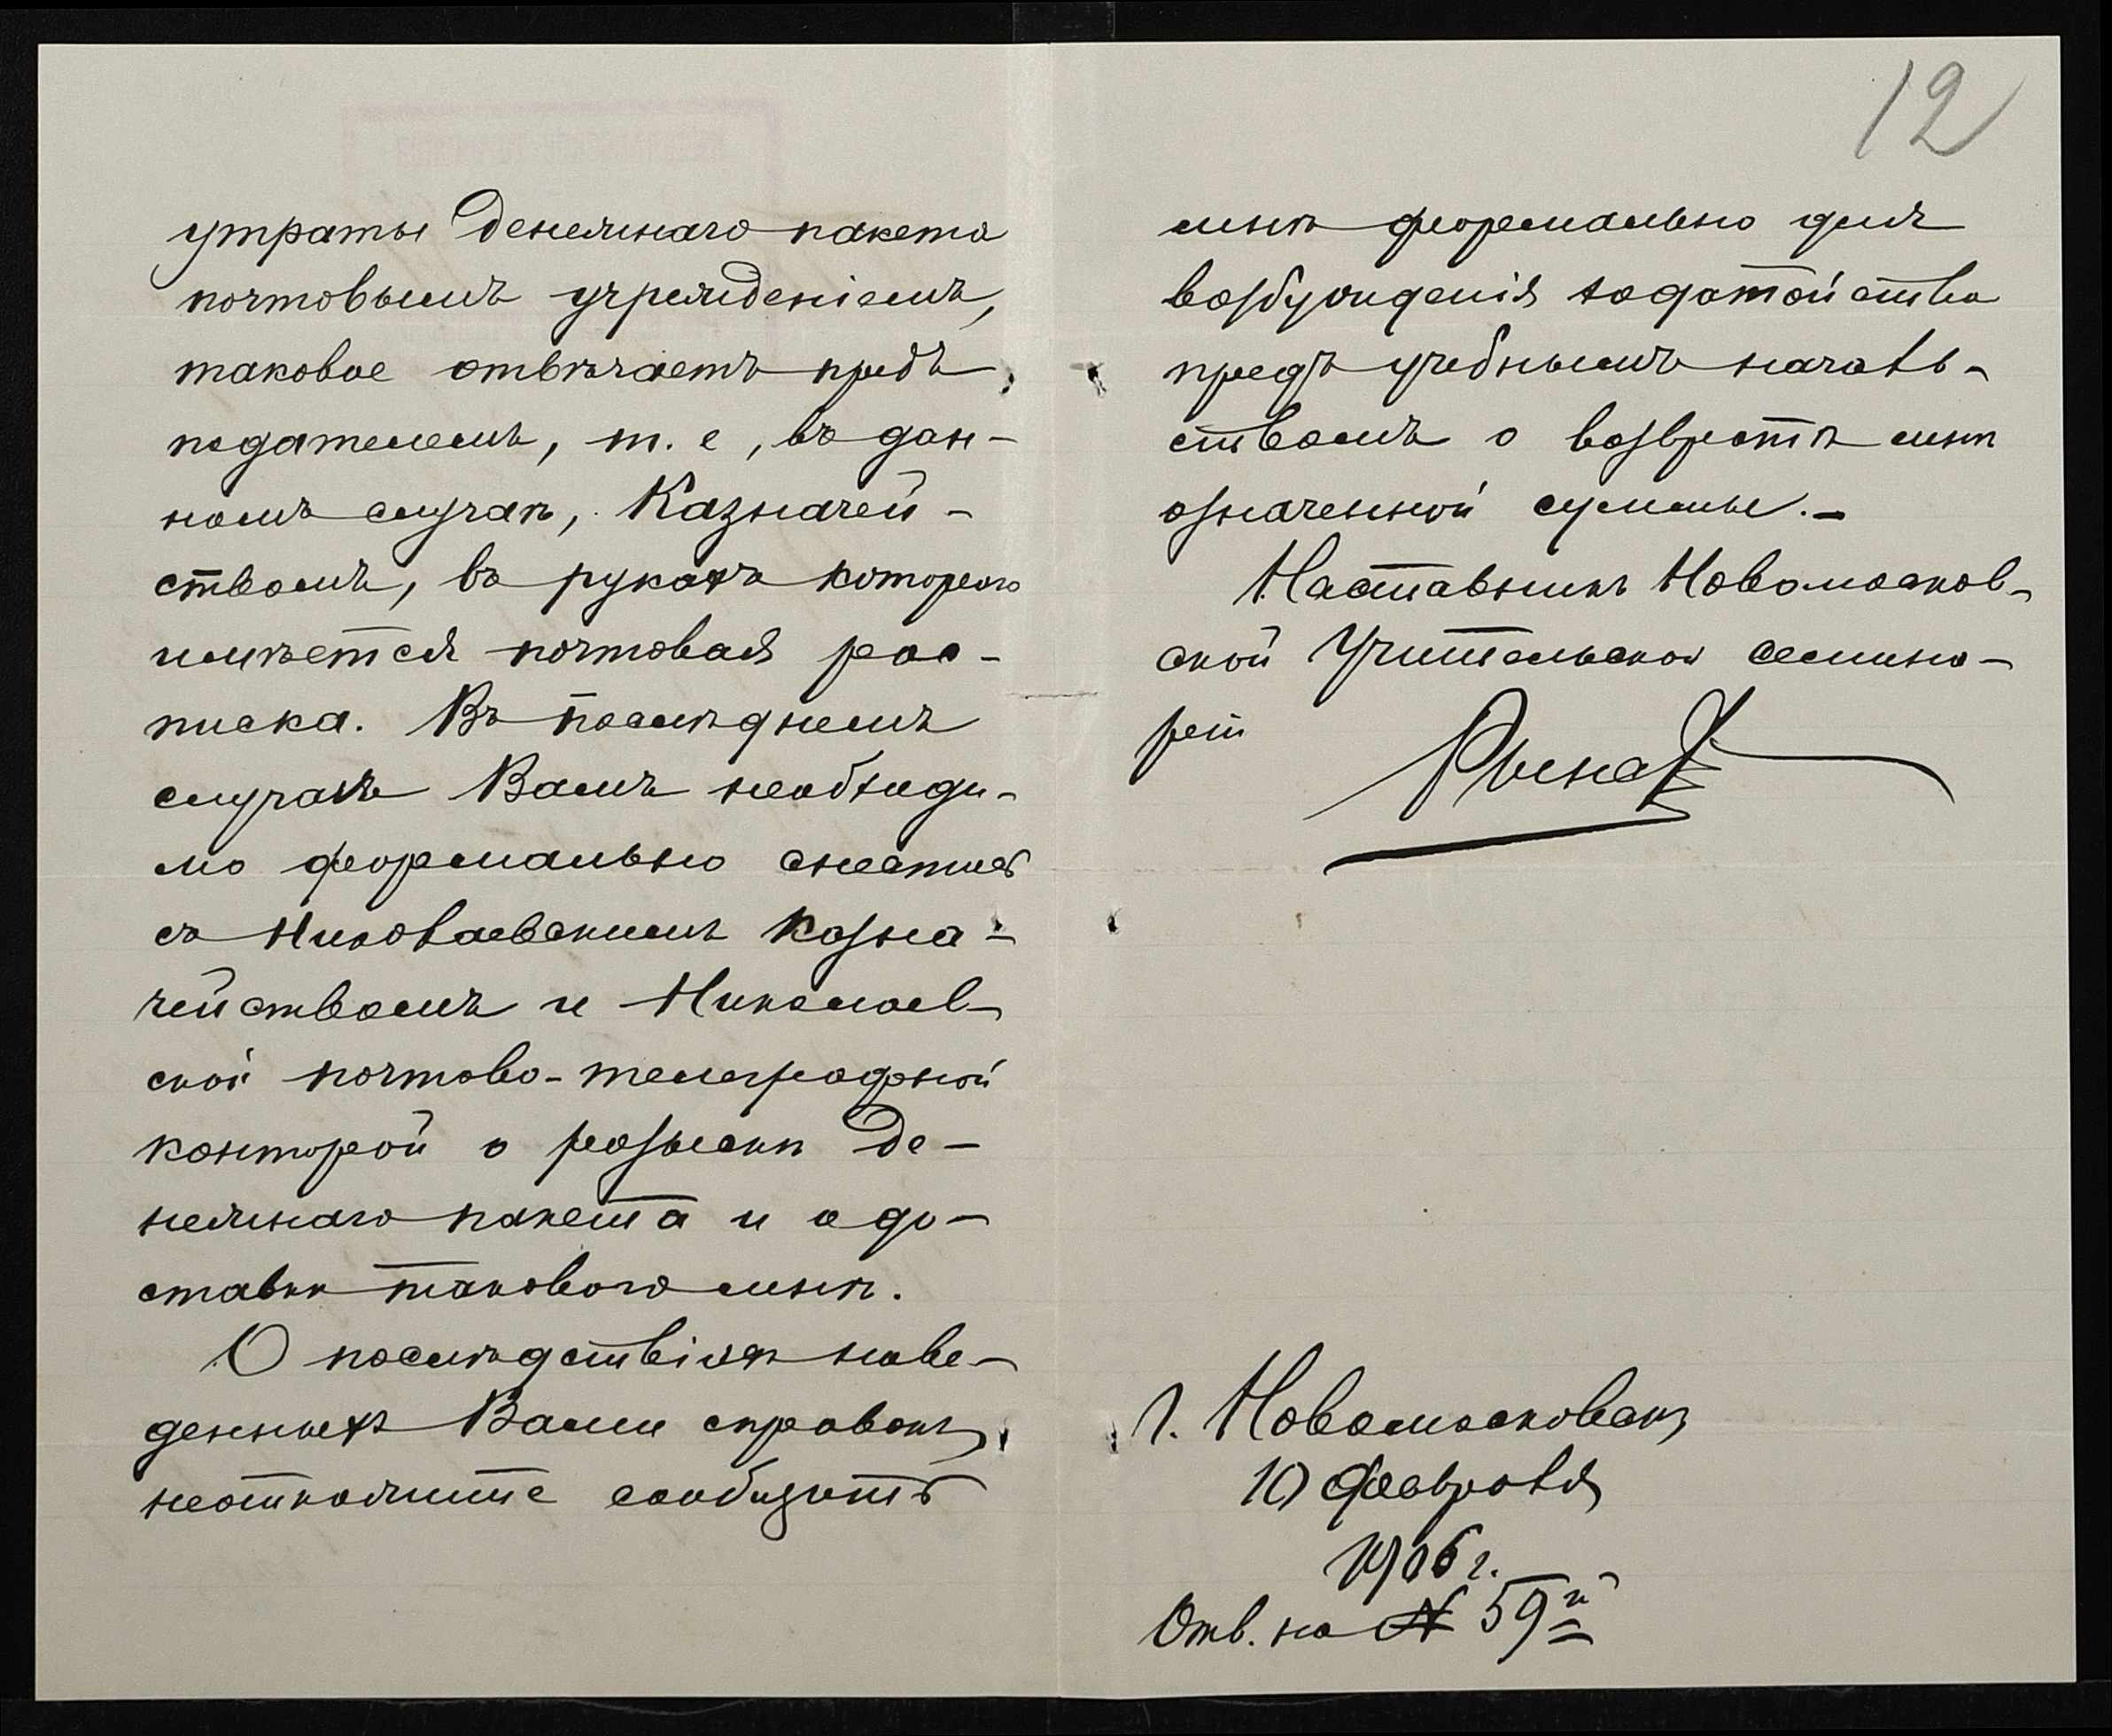 утраты денежнаго пакета
почтовымъ учрежденіемъ,
таковое отвѣчаетъ предъ
подателемъ, т. е, въ дан-
номъ случаѣ, Казначей-
ствомъ, въ рукахъ котораго
имѣется почтовая рос-
писка. Въ послѣднемъ
случаѣ Вамъ необходи-
мо формально снестись
съ Николаевскимъ Казна-
чействомъ и Николаев-
ской почтово-телеграфной
конторой о розыскѣ де-
нежнаго пакета и о до-
ставкѣ таковаго мнѣ.
О послѣдствіяхъ наве-
денныхъ Вами справокъ,
неоткажите сообщить
12
мнѣ формально для
возбужденія ходатайства
предъ учебнымъ началь-
ствомъ о возвратѣ мнѣ
означенной суммы.-
Наставникъ Новомосков-
ской Учительской семина-
ріи
г. Новомосковскъ
10 февраля
1906 г.
Отв. на № 59й